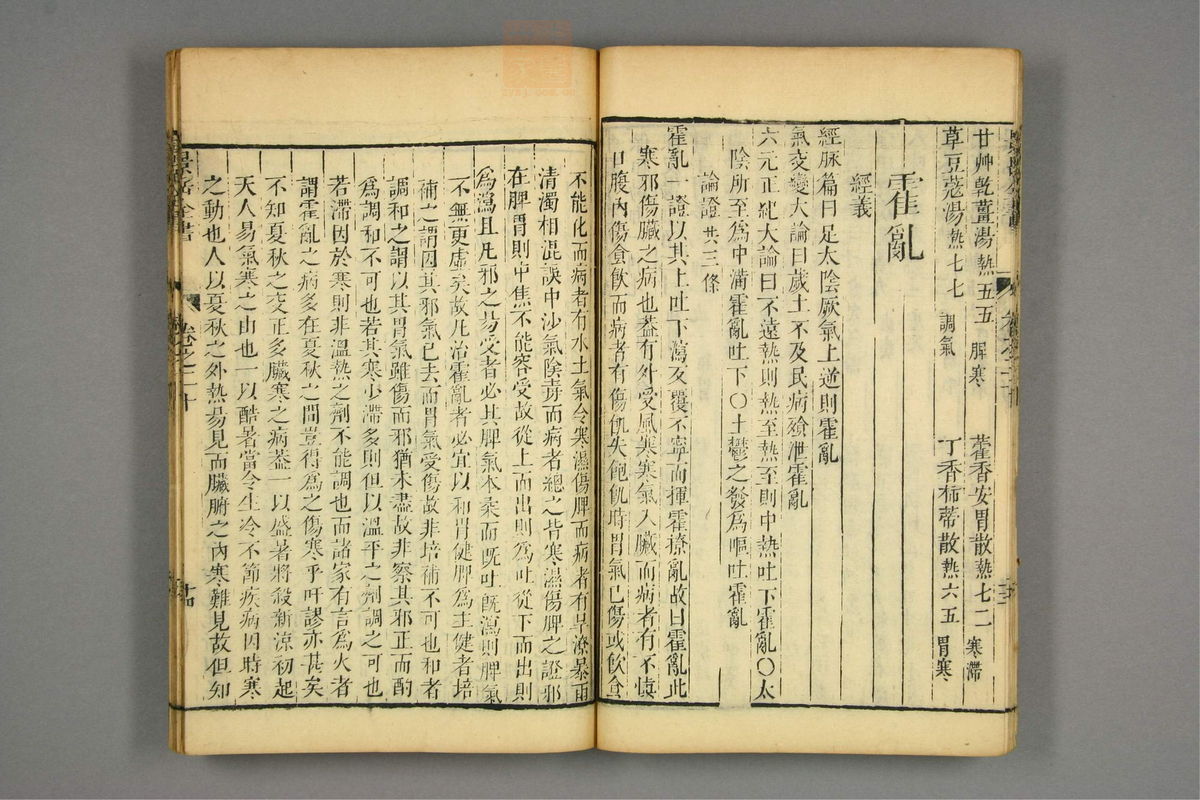 甘艸乾薑湯熱五五 脾寒 藿香安胃散熱七二 寒滯
草豆蔻湯熱七七 調氣 丁香柿蒂散熱六五 胃寒
霍亂
經義
經脉篇曰足太陰厥氣上逆則霍亂
氣交變大論曰歲土不及民病飱泄霍亂
六元正紀大論曰不遠熱則熱至熱至則中熱吐下霍亂〇太
陰所至爲中滿霍亂吐下〇土鬱之發爲嘔吐霍亂
論證 共三條
霍亂一證以其上吐下瀉反覆不寧而揮霍撩亂故曰霍亂此
寒邪傷臟之病也葢有外受風寒寒氣入臟而病者有不慎
口腹內傷食飲而病者有傷飢失飽飢時胃氣已傷或飲食
不能化而病者有水土氣令寒濕傷脾而病者有旱潦暴雨
清濁相混誤中沙氣陰毒而病者總之皆寒濕傷脾之證邪
在脾胃則中焦不能容受故從上而出則爲吐從下而出則
爲瀉且凡邪之易受者必其脾氣本柔而既吐既瀉則脾氣
不無更虛矣故凡治霍亂者必宜以和胃健脾爲主健者培
補之謂因其邪氣已去而胃氣受傷故非培補不可也和者
調和之謂以其胃氣雖傷而邪猶未盡故非察其邪正而酌
爲調和不可也若其寒少滯多則但以溫平之劑調之可也
若滯因於寒則非溫熱之劑不能調也而諸家有言爲火者
謂霍亂之病多在夏秋之間豈得爲之傷寒乎吁謬亦甚矣
不知夏秋之交正多臟寒之病葢一以盛暑將殺新涼初起
天人易氣寒之由也一以酷暑當令生冷不節疾病因時寒
之動也人以夏秋之外熱易見而臟腑之內寒難見故但知
景岳全書
卷之二十
廿四